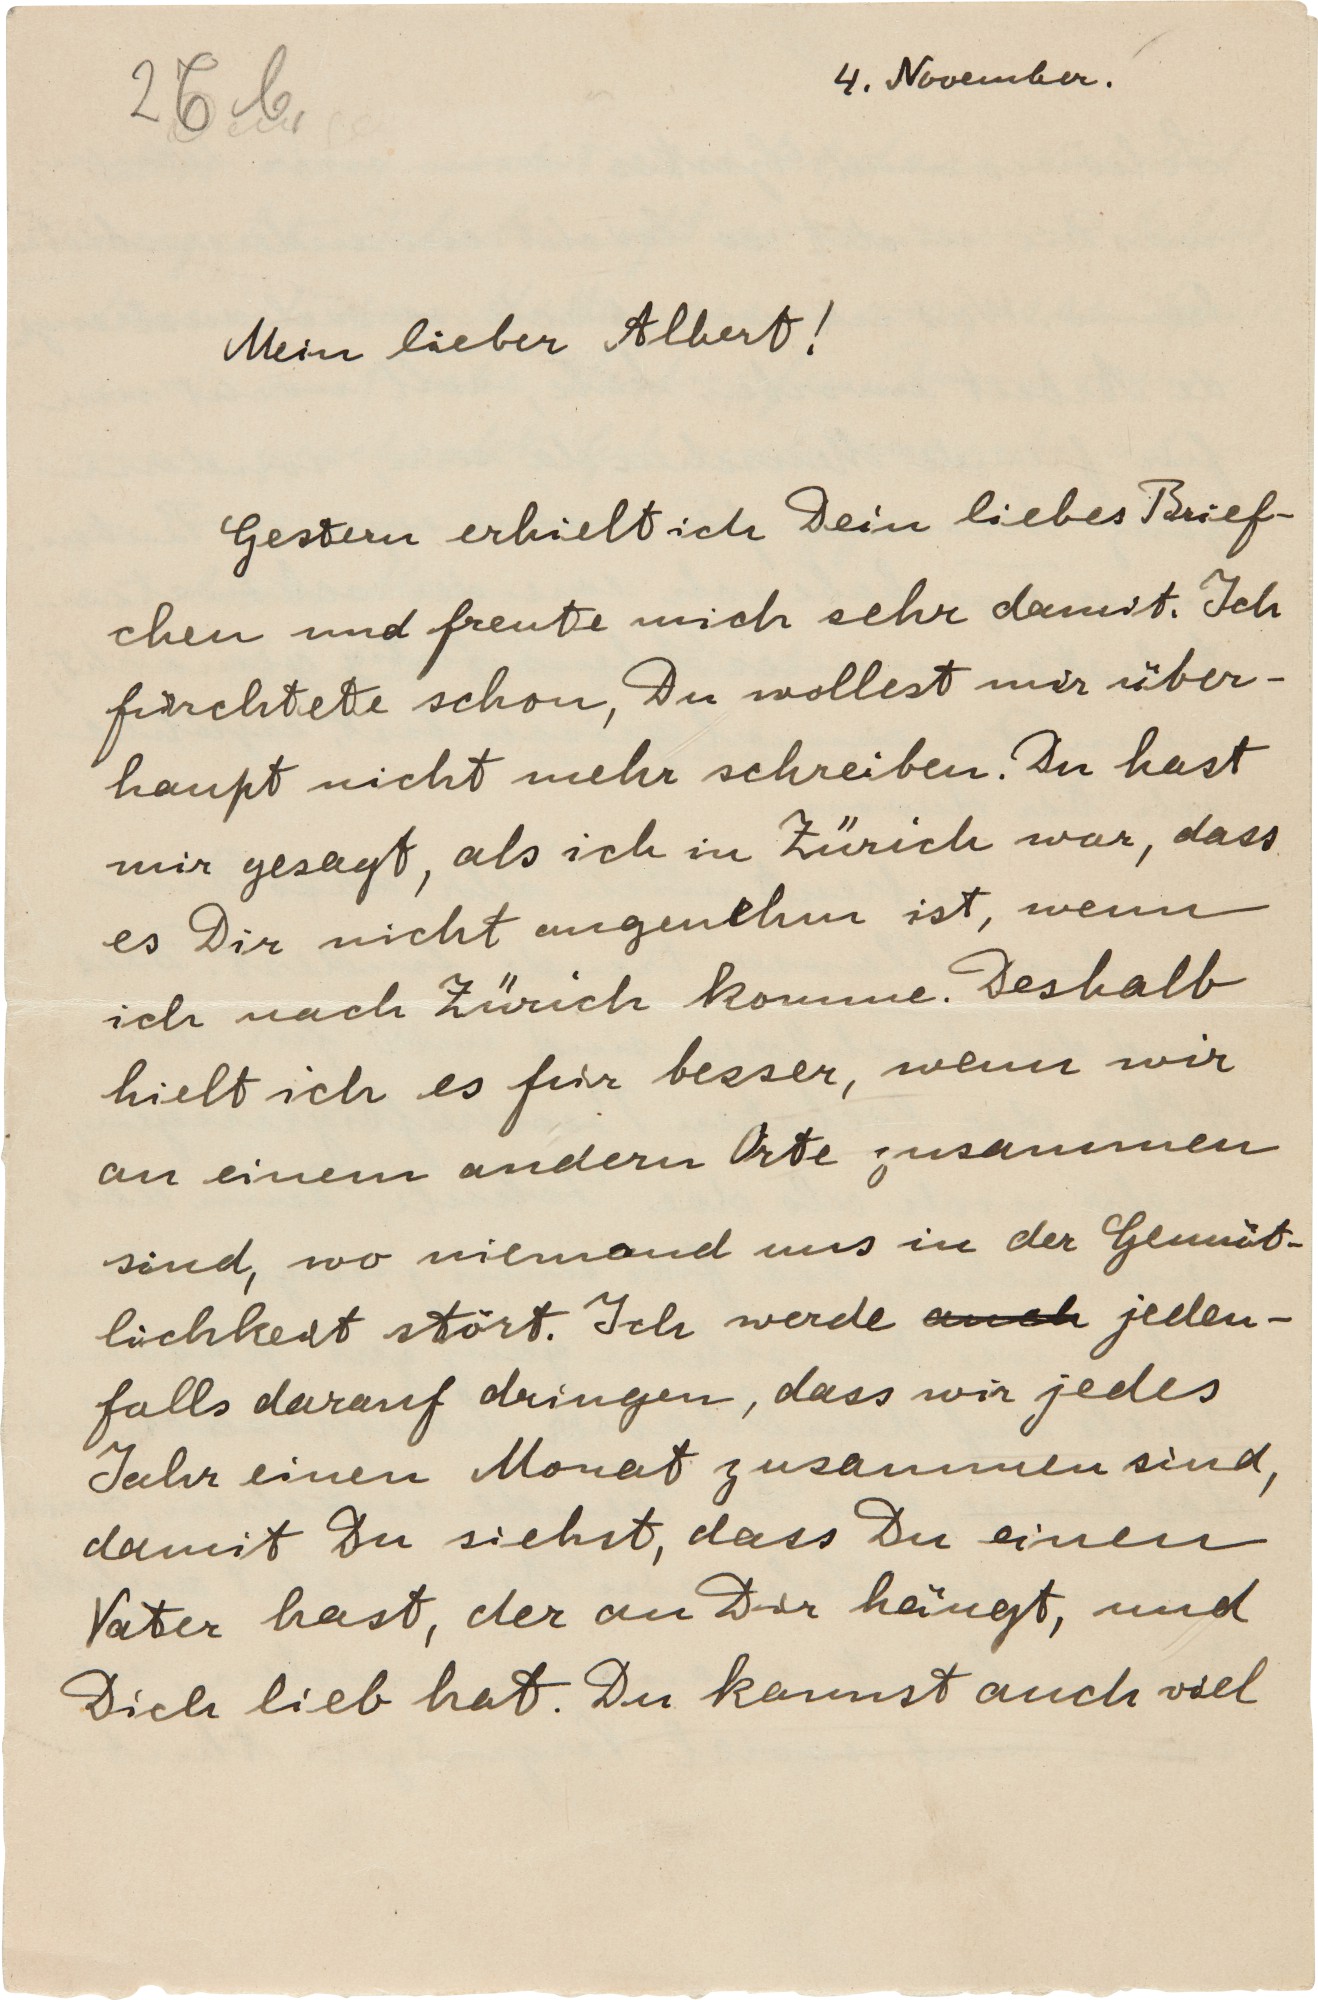 4. November.
Mein lieber Albert!
Gestern erhielt ich Dein liebes Brief-
chen und freute mich sehr damit. Ich
fürchtete schon, Du wollest mir über-
haupt nicht mehr schreiben. Du hast
mir gesagt, als ich in Zürich war, dass
es Dir nicht angenehm ist, wenn
ich nach Zürich komme. Deshalb
hielt ich es für besser, wenn wir
an einem andern Orte zusammen
sind, wo niemand uns in der Gemüt-
lichkeit stört. Ich werde auch jeden-
falls darauf dringen, dass wir jedes
Jahr einen Monat zusammen sind,
damit Du siehst, dass Du einen
Vater hast, der an Dir hängt, und
Dich lieb hat. Du kannst auch viel